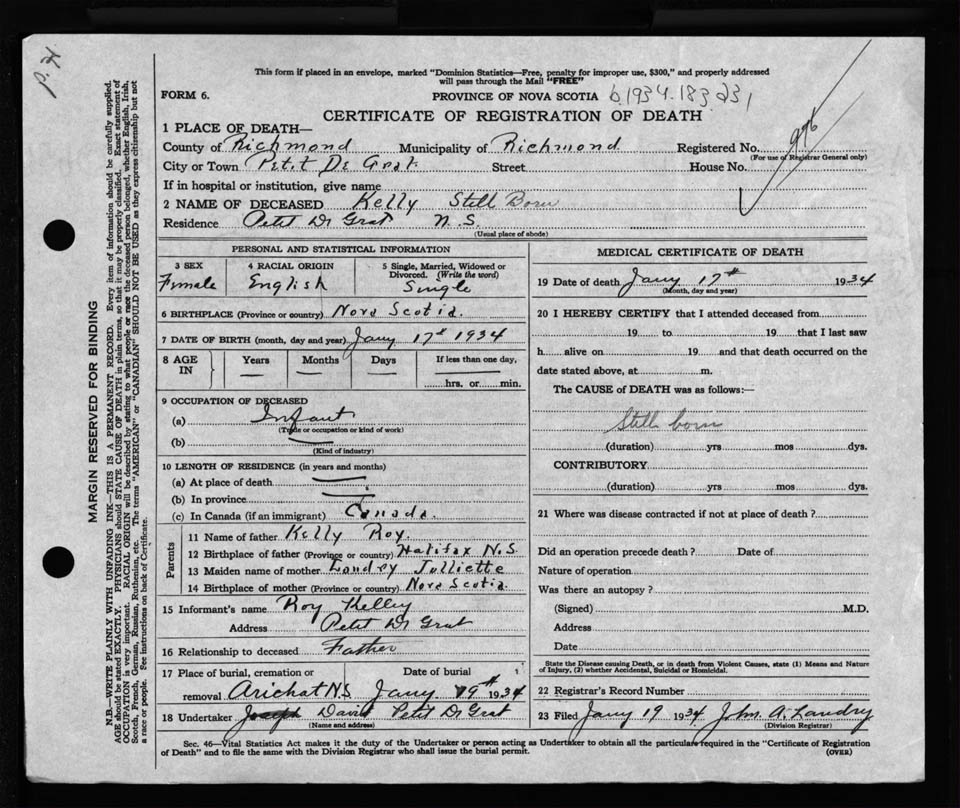 p. H
This form if placed in an envelope, marked "Dominion Statistics—Free, penalty for improper use, $300," and properly addressed
will pass through the Mail "FREE"
FORM 6.
PROVINCE OF NOVA SCOTIA b.1934.183.231
CERTIFICATE OF REGISTRATION OF DEATH
1 PLACE OF DEATH—
County of Richmond Municipality of Richmond Registered No. 996
(For use of Registrar General only)
City or Town Petit De Grat Street House No.
If in hospital or institution, give name
2 NAME OF DECEASED Kelly Still Born
Residence Petit De Grat N.S.
(Usual place of abode)
PERSONAL AND STATISTICAL INFORMATION
3 SEX 4 RACIAL ORIGIN 5 Single, Married, Widowed or
Divorced. (Write the word)
Female English Single
6 BIRTHPLACE (Province or country) Nova Scotia.
7 DATE OF BIRTH (month, day and year) Jany 17th 1934
8 AGE IN Years Months Days If less than one day,
hrs. or min.
9 OCCUPATION OF DECEASED
(a) Infant
(Trade or occupation or kind of work)
(b)
(Kind of industry)
10 LENGTH OF RESIDENCE (in years and months)
(a) At place of death
(b) In province
(c) In Canada (if an immigrant) Canada.
Parents
11 Name of father Kelly Roy.
12 Birthplace of father (Province or country) Halifax N.S
13 Maiden name of mother Landry Julliette
14 Birthplace of mother (Province or country) Nova Scotia.
15 Informant's name Roy Kelley
Address Petit De Grat
16 Relationship to deceased Father
17 Place of burial, cremation or Date of burial
removal Arichat N.S Jany 19th 1934
18 Undertaker Joseph David Petit De Grat
(Name and address)
MEDICAL CERTIFICATE OF DEATH
19 Date of death Jany 17th 1934
(Month, day and year)
20 I HEREBY CERTIFY that I attended deceased from
19 to 19 that I last saw
h alive on 19 and that death occurred on the
date stated above, at m.
The CAUSE of DEATH was as follows:—
Still born
(duration) yrs mos dys.
CONTRIBUTORY
(duration) yrs mos dys.
21 Where was disease contracted if not at place of death?
Did an operation precede death? Date of
Nature of operation
Was there an autopsy?
(Signed) M.D.
Address
Date
State the Disease causing Death, or in death from Violent Causes, state (1) Means and Nature
of Injury, (2) whether Accidental, Suicidal or Homicidal.
22 Registrar's Record Number
23 Filed Jany 19 1934 Jhn. A. Landry
(Division Registrar)
Sec. 46—Vital Statistics Act makes it the duty of the Undertaker or person acting as Undertaker to obtain all the particulars required in the "Certificate of Registration
of Death" and to file the same with the Division Registrar who shall issue the burial permit. (OVER)
MARGIN RESERVED FOR BINDING
N.B.—WRITE PLAINLY WITH UNFADING INK—THIS IS A PERMANENT RECORD. Every item of information should be carefully supplied.
AGE should be stated EXACTLY. PHYSICIANS should STATE CAUSE OF DEATH in plain terms, so that it may be properly classified. Exact statement of
OCCUPATION is very important. RACIAL ORIGIN will be described by stating to what people or race the deceased person belonged, whether English, Irish,
Scotch, French, German, Russian, Ruthenian, etc. The terms "AMERICAN" or "CANADIAN" SHOULD NOT BE USED as they express citizenship but not
a race or people. See instructions on back of Certificate.